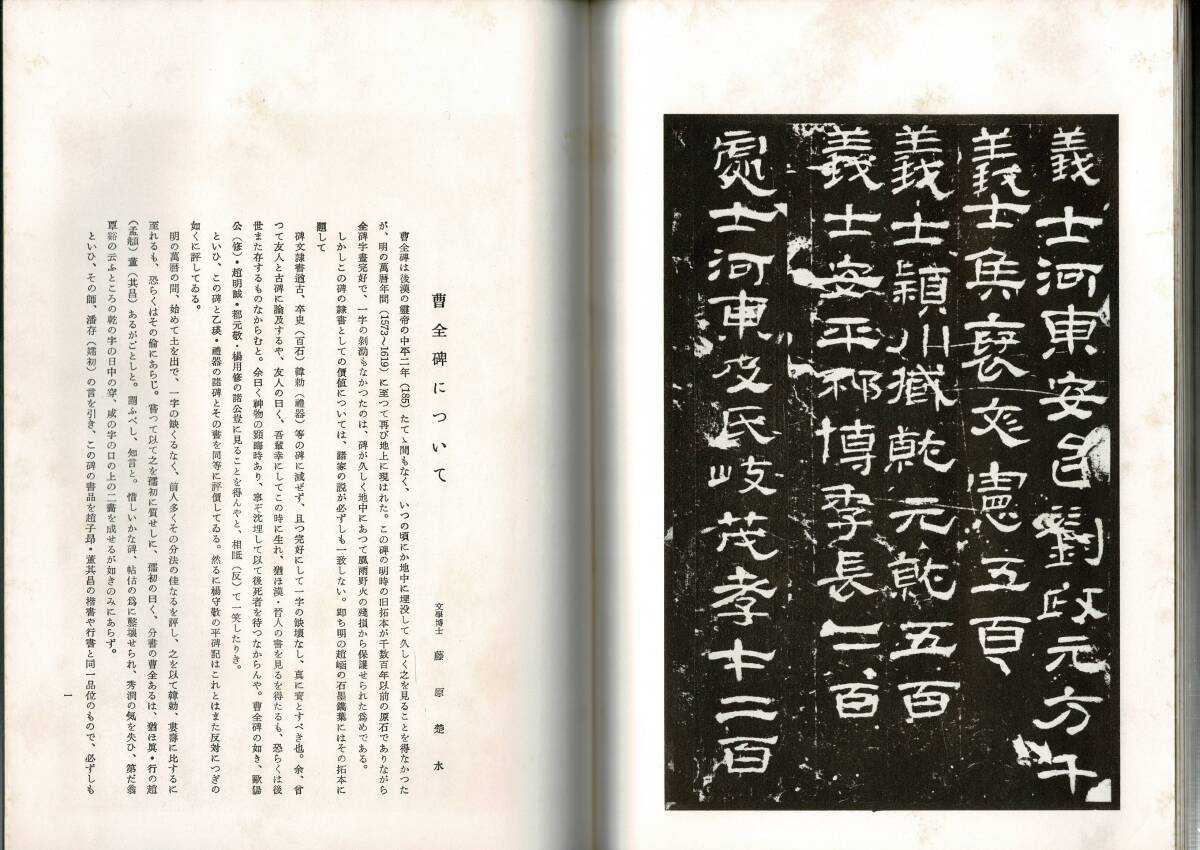 義士河東安邑劉政元方千
義士侯褒文憲五百
義士潁川臧就元就五百
義士安平祁博季長二百
處士河東皮氏岐茂孝才二百
曹全碑について
文學博士 藤原楚水
曹全碑は後漢の靈帝の中平二年(185)たてゝ間もなく、いつの頃にか地中に埋没して久しく之を見ることを得なかつた
が、明の萬曆年間(1573~1619)に至つて再び地上に現はれた。この碑の明時の旧拓本が千数百年以前の原石でありながら
全碑字畫完好で、一字の剝泐もなかつたのは、碑が久しく地中にあつて風雨野火の殘損から保護せられた爲めである。
しかしこの碑の隷書としての價値については、諸家の說が必ずしも一致しない。即ち明の趙崡の石墨鐫華にはその拓本に
題して
碑文隷書遒古、卒史(百石)韓勅(禮器)等の碑に減ぜず、且つ完好にして一字の缺壊なし、真に寳とすべき也。余、曾
つて友人と古碑に論及するや、友人の曰く、吾輩幸にしてこの時に生れ、猶ほ漢・晉人の書を見るを得たるも、恐らくは後
世また存するものなからむと。余曰く神物の顕晦時あり、寧ぞ沈埋して以て後死者を待つなからんや。曹全碑の如き、歐陽
公(修)・趙明誠・都元敬・楊用修の諸公豈に見ることを得んやと、相眂(反)て一笑したりき。
といひ、この碑と乙瑛・禮器の諸碑とその書を同等に評價してゐる。然るに楊守敬の平碑記はこれとはまた反対につぎの
如くに評してゐる。
明の萬曆の間、始めて土を出で、一字の缺くるなく、前人多くその分法の佳なるを評し、之を以て韓勅、婁壽に比するに
至れるも、恐らくはその倫にあらじ。嘗つて以て之を孺初に質せしに、孺初の曰く、分書の曹全あるは、猶ほ眞・行の趙
(孟頫)董(其昌)あるがごとしと。謂ふべし、知言と。惜しいかな碑、帖估の爲に鑿壊せられ、秀潤の気を失ひ、第だ翁
覃谿の云ふところの乾の字の日中の穿、咸の字の口の上の二畵を成せるが如きのみにあらず。
といひ、その師、潘存(孺初)の言を引き、この碑の書品を趙子昂・董其昌の楷書や行書と同一品位のもので、必ずしも
一